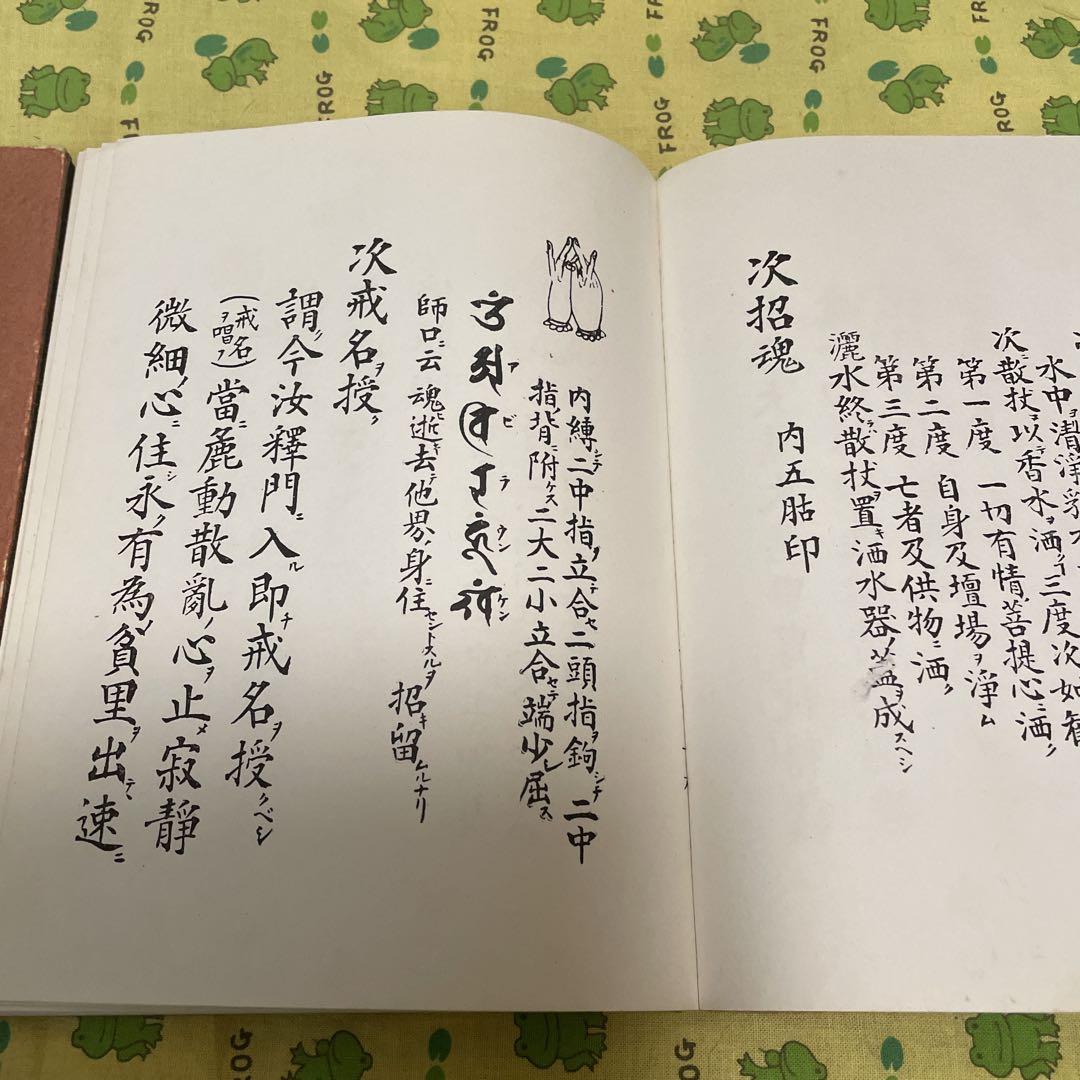 水中ヲ清淨
次ニ散杖ヲ以テ香水ヲ洒グ 三度次如
第一度 一切有情ノ菩提心ニ洒ク
第二度 自身及壇場ヲ淨ム
第三度 亡者及供物ニ洒ク
灑水終ラバ散杖ヲ置キ洒水器ノ蓋ヲ成スベシ
次招魂 内五貼印
内縛シテ二中指ヲ立テ合セ二頭指ヲ鉤シテ二中
指ノ背ニ附ケズ 二大二小立合セテ端少シ屈ス
ア ビ ラ ウン ケン
師口ニ云 魂逝キ去テ他界ノ身ニ住セントスルヲ招キ留ムルナリ
次戒名ヲ授ク
謂ク今汝釋門ニ入ル即チ戒名ヲ授クベシ
(戒名ヲ唱フ)當ニ麁動散亂ノ心ヲ止メ寂静
微細ノ心ニ住シ永ク有為ノ貧里ヲ出テ速ニ
FROG
FROG
FROG
FROG
FROG
FROG
FROG
FROG
FROG